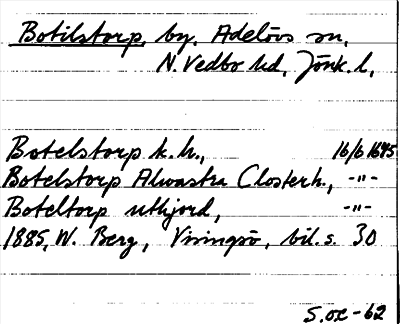 Botilstorp, by, Adelövs sn,
N. Vedbo hd, Jönk. l,
Botelstorp k.h., 16/6 1685
Botelstorp Alwastra Closterh., -"-
Boteltorp uthjord, -"-
1885, W. Berg, Visingsö, bil. s. 30
S.OC-62